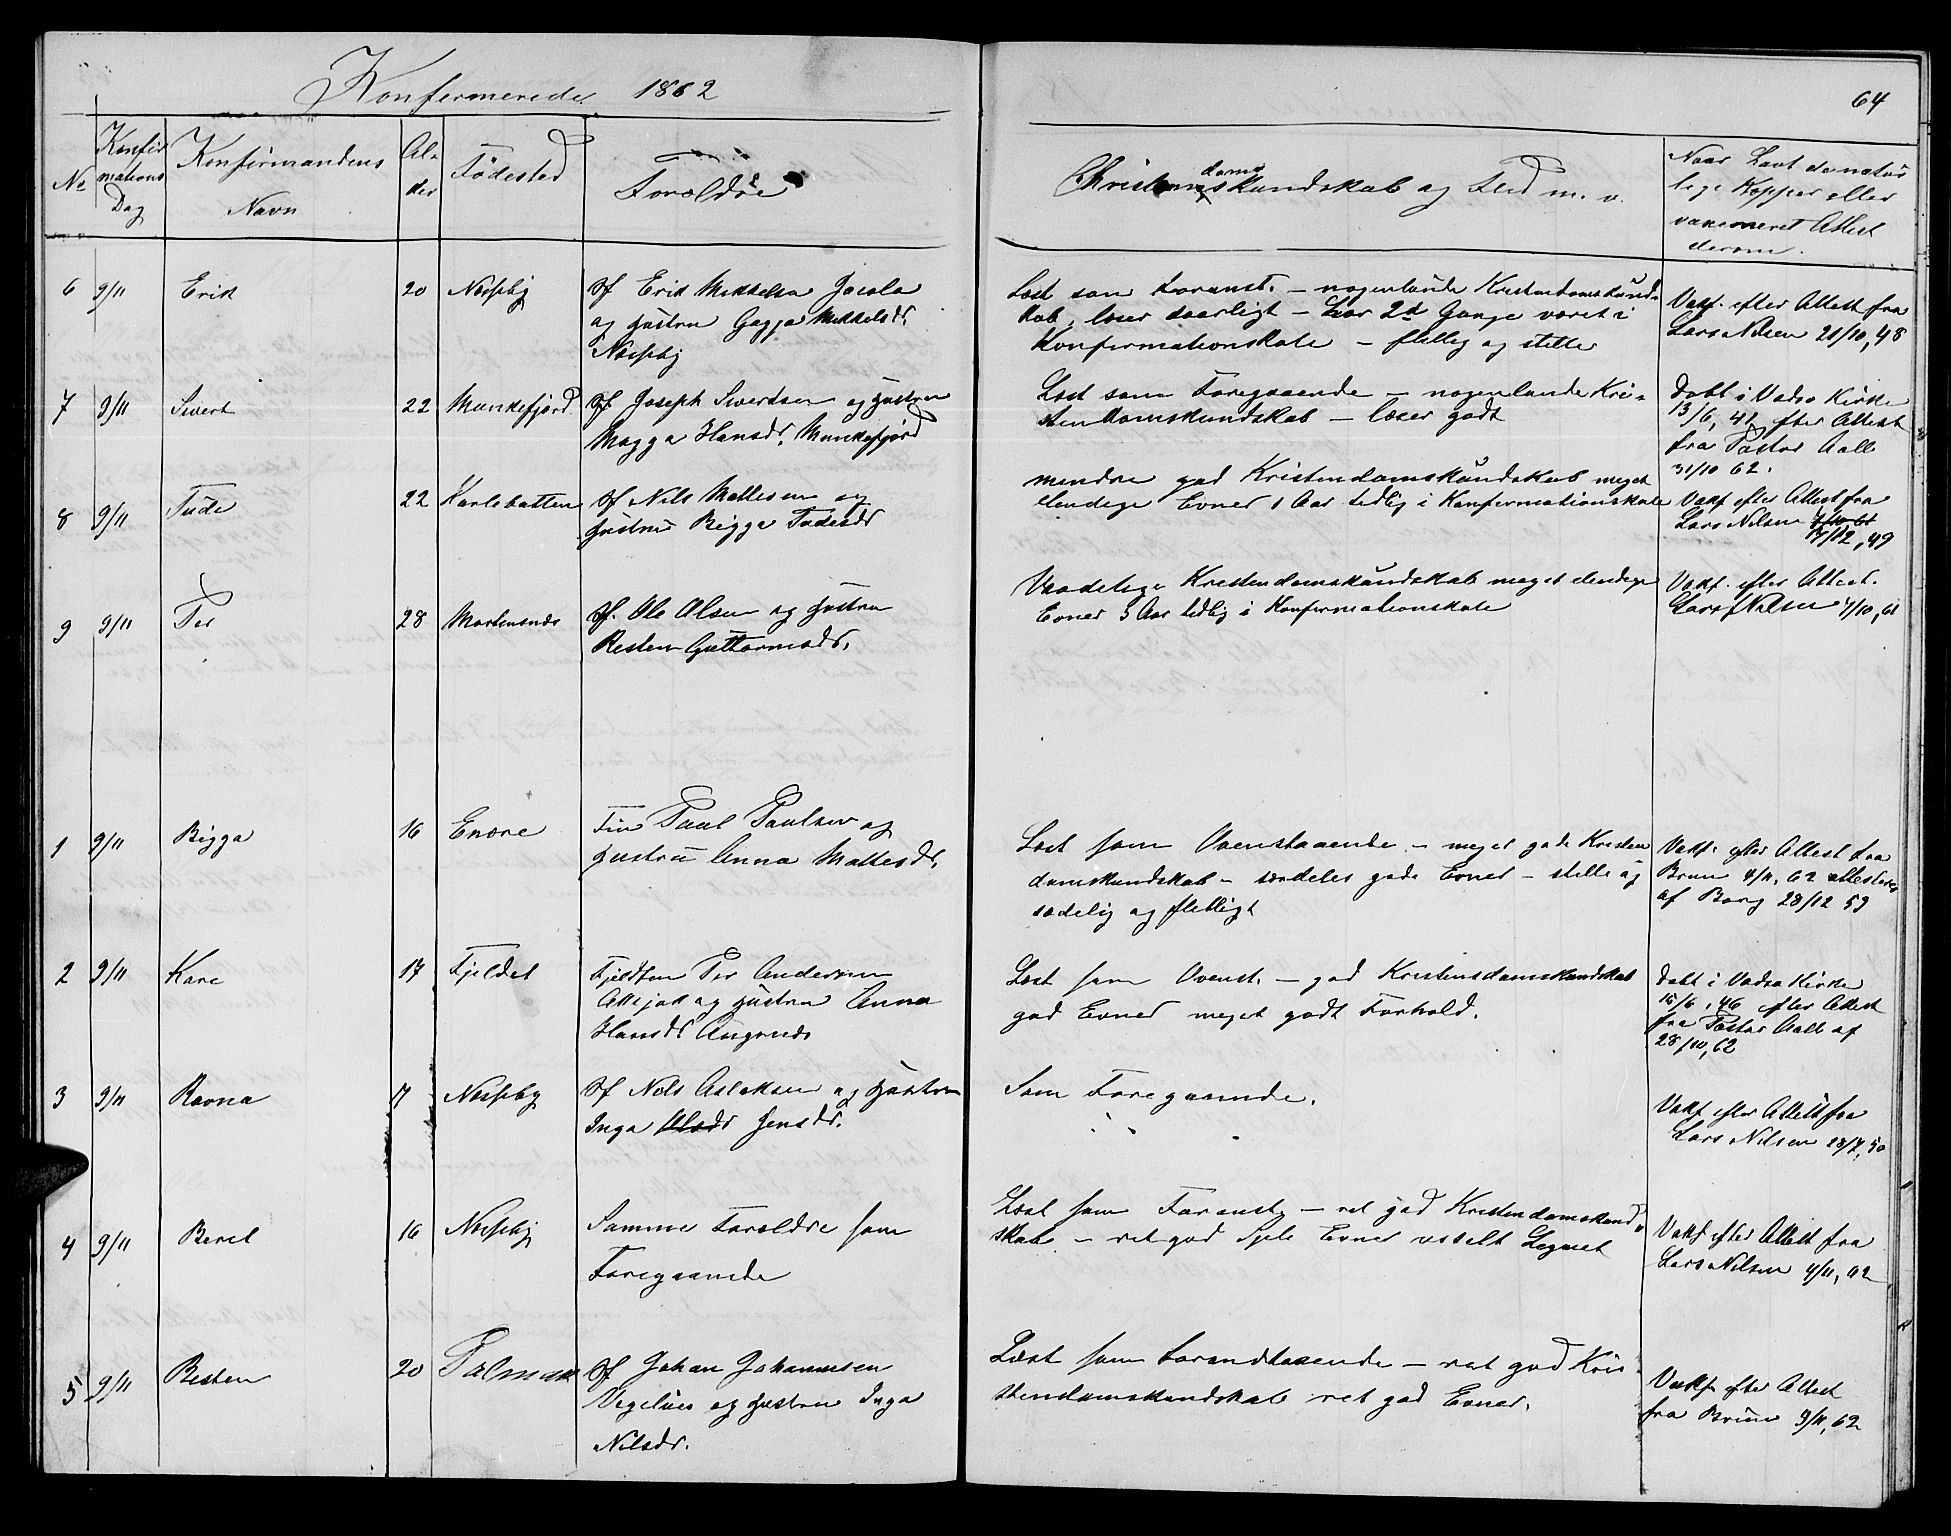 Konfermerede 1862
64
No
Konfir
mations
Dag
Konfirmandens
Navn
Al-
der
Födested
Foreldre
Christendomskundskab og Flid m. v.
Naar Havt de natur
lige Kopper eller
vaccineret Attest
derom.
6 9/11 Erik 20 Nesseby Sf Erik Mikkelsen Jacola
og Hustru Gagga Mikkelsdr.
Nesseby
Læst som foranst. - nogenlunde Kristendomskund-
skab, læser daarligt - har 2d Gange været i
Konfirmationskole - flittig og stille
Vakf. efter Attest fra
Lars Nilsen 21/10, 48
7 9/11 Sivert 22 Munkefjord Sf Joseph Sivertsen og Hustru
Magga Hansdr. Munkefjord
Læst som Foregaaende - nogenlunde Kri-
stendomskundskab - læser godt
Döbt i Vadsö Kirke
13/6, 41 efter Attest
fra Pastor Aall
31/10 62.
8 9/11 Tude 22 Karlebotten Sf Nils Mathesen og
Hustru Bigga Tudesdr
mendre god Kristendomskundskab meget
elendige Evner 1 Aar tidlig i Konfirmationskole
Vakf. efter Attest fra
Lars Nilsen
17/12, 49
9 9/11 Per 28 Mortensnes Sf. Ole Olsen og Hustru
Resten Guttormsdr.
Maadelige Kristendomskundskab meget elendige
Evner 3 Aar tidlig i Konfirmationskole
Vakf. efter Attest.
Lars Nilsen 4/10, 61
1 9/11 Bigga 16 Enare Fin Paul Paulsen og
Hustru Anna Mattesdr.
Læst som Ovenstaaende - meget gode Kristen
domskundskab - særdeles gode Evner - stille og
sædelig og flittigt
Vakf. efter Attest fra
Brun 4/11, 62 attesteres
af Borg 28/12 59
2 9/11 Kare 17 Fjeldet Fjeldfin Per Andersen
og Hustru Anna
Hansdr
Læst som Ovenst. - god Kristensdomskundskab
god Evner meget godt Forhold.
Döbt i Vadsö Kirke
15/6, 46 efter Attest
fra Pastor Aall af
28/10, 62
3 9/11 Ravna 17 Nesseby Sf Nils Aslaksen og Hustru
Inga Jensdr.
Som Foregaaende.
Vakf efter Attest fra
Lars Nilsen 28/7, 50
4 9/11 Beret 16 Nesseby Samme Foreldre som
Foregaaende
Læst som Foranst. - ret god Kristendomskund-
skab - ret god Sjels Evner usselt Legmet
Vakf efter Attest fra
Lars Nilsen 4/11, 62
5 9/11 Resten 20 Polmak Sf Johan Johannesen
og Hustru Inga
Nilsdr.
Læst som forandstaaende - ret god Kris
stendomskundskab ret god Evner.
Vakf efter Attest
fra Brun 9/11, 62